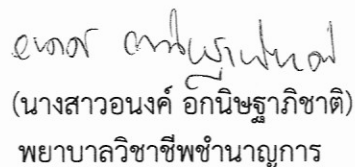 (นางสาวอนงค์ อักนิษฐาภิชาติ)
พยาบาลวิชาชีพชำนาญการ